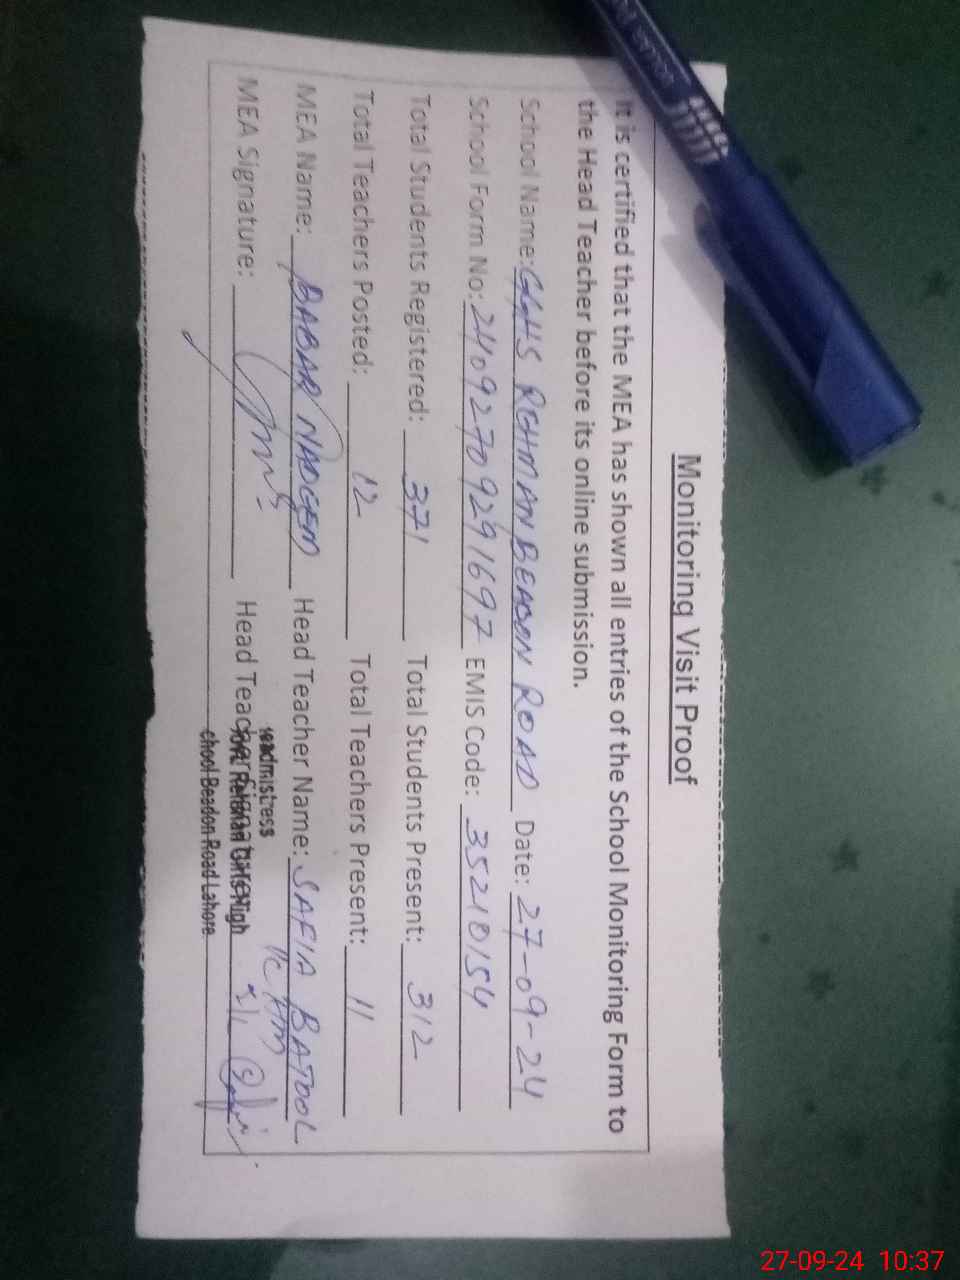 Monitoring Visit Proof
It is certified that the MEA has shown all entries of the School Monitoring Form to
the Head Teacher before its online submission.
School Name: GGHS REHMAN BEADON ROAD Date: 27-09-24
School Form No: 24092709291697 EMIS Code: 35210154
Total Students Registered: 371 Total Students Present: 312
Total Teachers Posted: 12 Total Teachers Present: 11
MEA Name: BABAR NADEEM Head Teacher Name: SAFIA BATOOL
MEA Signature: Head Teacher Signature:
eadmistress
Govt. Rehman Girls High
chool Beadon Road Lahore
27-09-24 10:37